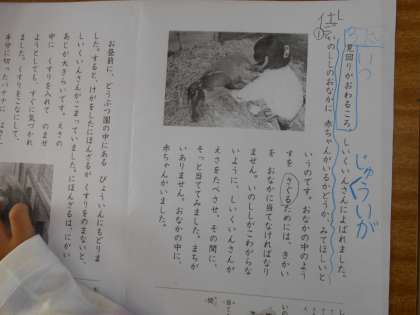 いつ
じゅういが
見回りがおわるころ、しいくいんさんによばれました。
いのししのおなかに 赤ちゃんがいるかどうか、みてほしいと
いうのです。おなかの中のよう
すを さぐるためには、きかい
を おなかに当てなければなり
ません。いのししがこわがらな
いように、しいくいんさんが
えさをたべさせ、その間に、
そっと当ててみました。まちが
いありません。おなかの中に、
赤ちゃんがいました。
お昼前に、どうぶつ園の中にある びょういんにもどりま
した。すると、けがをしたにほんざるが くすりをのまないと、
しいくいんさんがこまっていました。にほんざるは、にがい
あじが大きらいです。えさの
中に くすりを入れて のませ
ようとしても、すぐに気づかれ
ました。くすりをこなにして、
半分に切ったバナナに